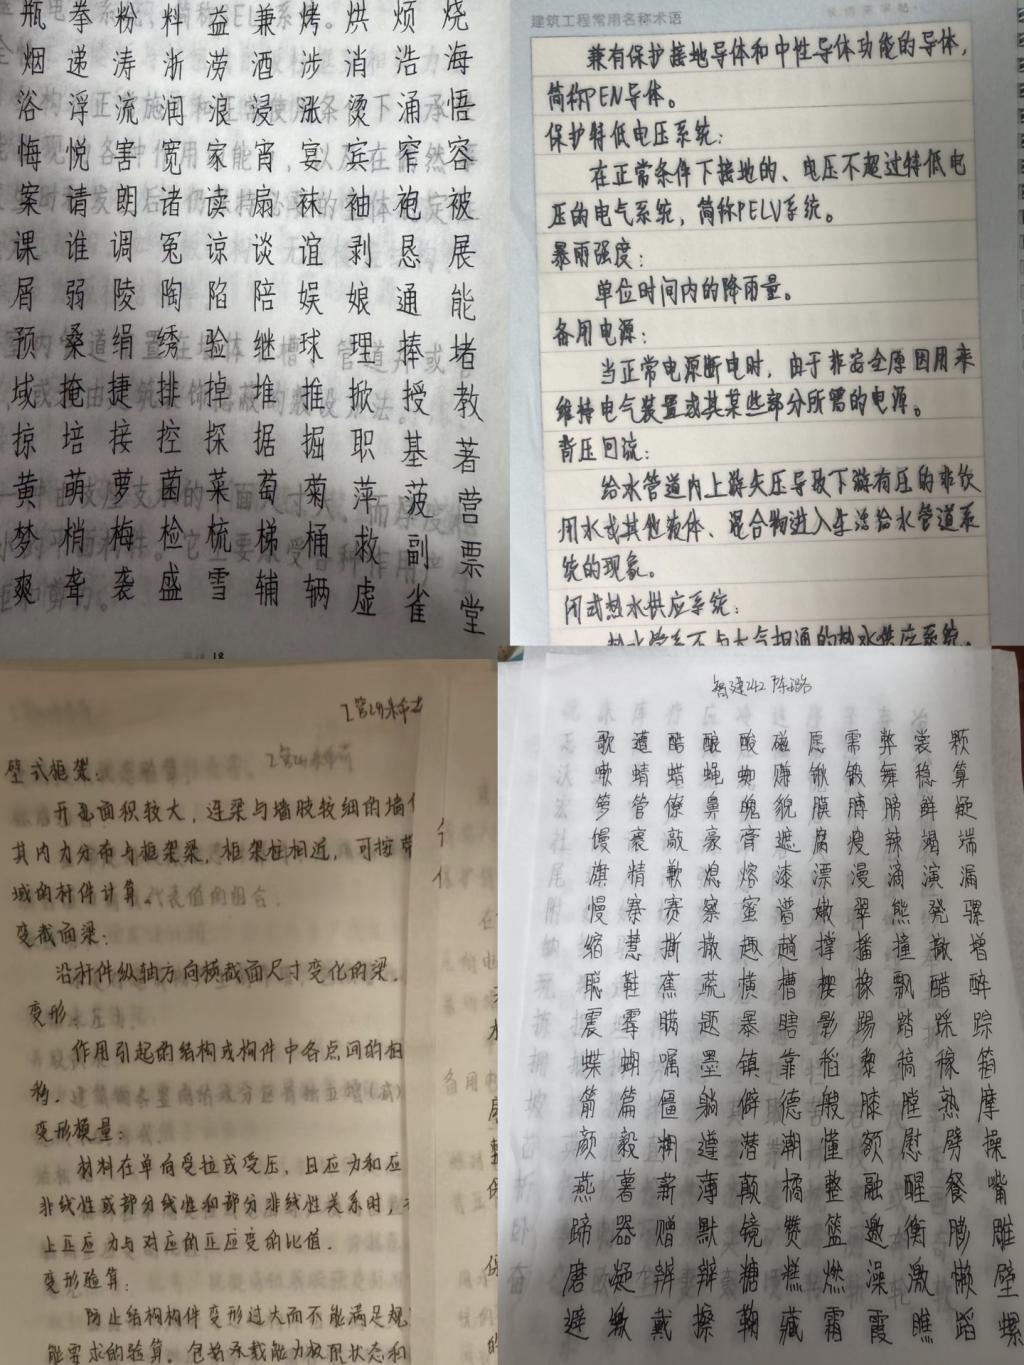 瓶拳粉料益兼烤烘烦烧
烟递涛浙涝酒涉消浩海
浴浮流润浪浸涨烫涌悟
悔悦害宽家宵宴宾窄容
案请朗诸读扇袜袖袍被
课谁调冤谅谈谊剥恳展
屑弱陵陶陷陪娱娘通能
预桑绢绣验继球理捧堵
域掩捷排掉堆推掀授教
掠培接控探据掘职基著
黄萌萝菌菜萄菊萍菠营
梦梢梅检梳梯桶救副票
爽聋袭盛雪辅辆虚雀堂
18
建筑工程常用名称术语
兼有保护接地导体和中性导体功能的导体，
简称PEN导体。
保护特低电压系统：
在正常条件下接地的、电压不超过特低电
压的电气系统，简称PELV系统。
暴雨强度：
单位时间内的降雨量。
备用电源：
当正常电源断电时，由于非安全原因用来
维持电气装置或其某些部分所需的电源。
背压回流：
给水管道内上游失压导致下游有压的非饮
用水或其他液体、混合物进入生活给水管道系
统的现象。
闭式热水供应系统：
热水管系不与大气相通的热水供应系统。
壁式框架：
开孔面积较大，连梁与墙肢较细的墙
其内力分布与框架梁、框架柱相近，可按带
域的杆件计算。
变截面梁：
沿杆件纵轴方向横截面尺寸变化的梁。
变形
作用引起的结构或构件中各点间的相
移。
变形模量：
材料在单向受拉或受压，且应力和应
非线性或部分线性和部分非线性关系时，
上正应力与对应的正应变的比值。
变形验算：
防止结构构件变形过大而不能满足规
能要求的验算。包括承载能力极限状态和
智建242
歌遭酷酿酸磁愿需弊裳颗
嗽蜻蜡蝇蜘赚锹锻舞稳算
箩管僚鼻魄貌膜膊膀鲜疑
馒裹敲豪膏遮腐瘦辣竭端
旗精歉熄熔漆漂漫滴演漏
慢寨赛察蜜谱嫩翠熊凳骡
缩慧撕撒趣趟撑播撞撤增
聪鞋蕉蔬横槽樱橡飘醋醉
震霉瞒题暴瞎影踢踏踩踪
蝶蝴嘱墨镇靠稻黎稿稼箱
箭篇僵躺僻德艘膝膛熟摩
颜毅糊遵潜潮懂额慰劈操
燕薯薪薄颠橘整融醒餐嘴
蹄器赠默镜赞篮邀衡膨雕
磨凝辨辩糖糕燃澡激懒壁
避缴戴擦鞠藏霜霞瞧蹈螺